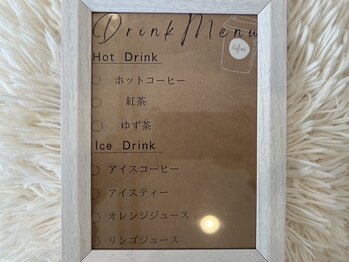 Drink Menu
Hot Drink
○ ホットコーヒー
○ 紅茶
○ ゆず茶
Ice Drink
○ アイスコーヒー
○ アイスティー
○ オレンジジュース
○ リンゴジュース